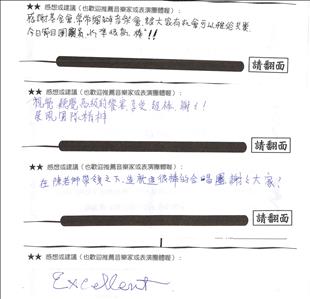 感謝基金會,常常辦音樂會,讓大家有機會可以種給天堂
今日節目團最高,水準很棒!!
請翻面
★★ 感想或建議(也歡迎推薦音樂家或表演團體喔):
視覺聽覺高級的饗宴享受超棒、謝謝!
展風團隊精神
請翻面
★★ 感想或建議(也歡迎推薦音樂家或表演團體喔):
在陳老師帶領之下,造就這很棒的合唱團,謝謝大家!
請翻面
★★ 感想或建議(也歡迎推薦音樂家或表演團體喔):
Excellent